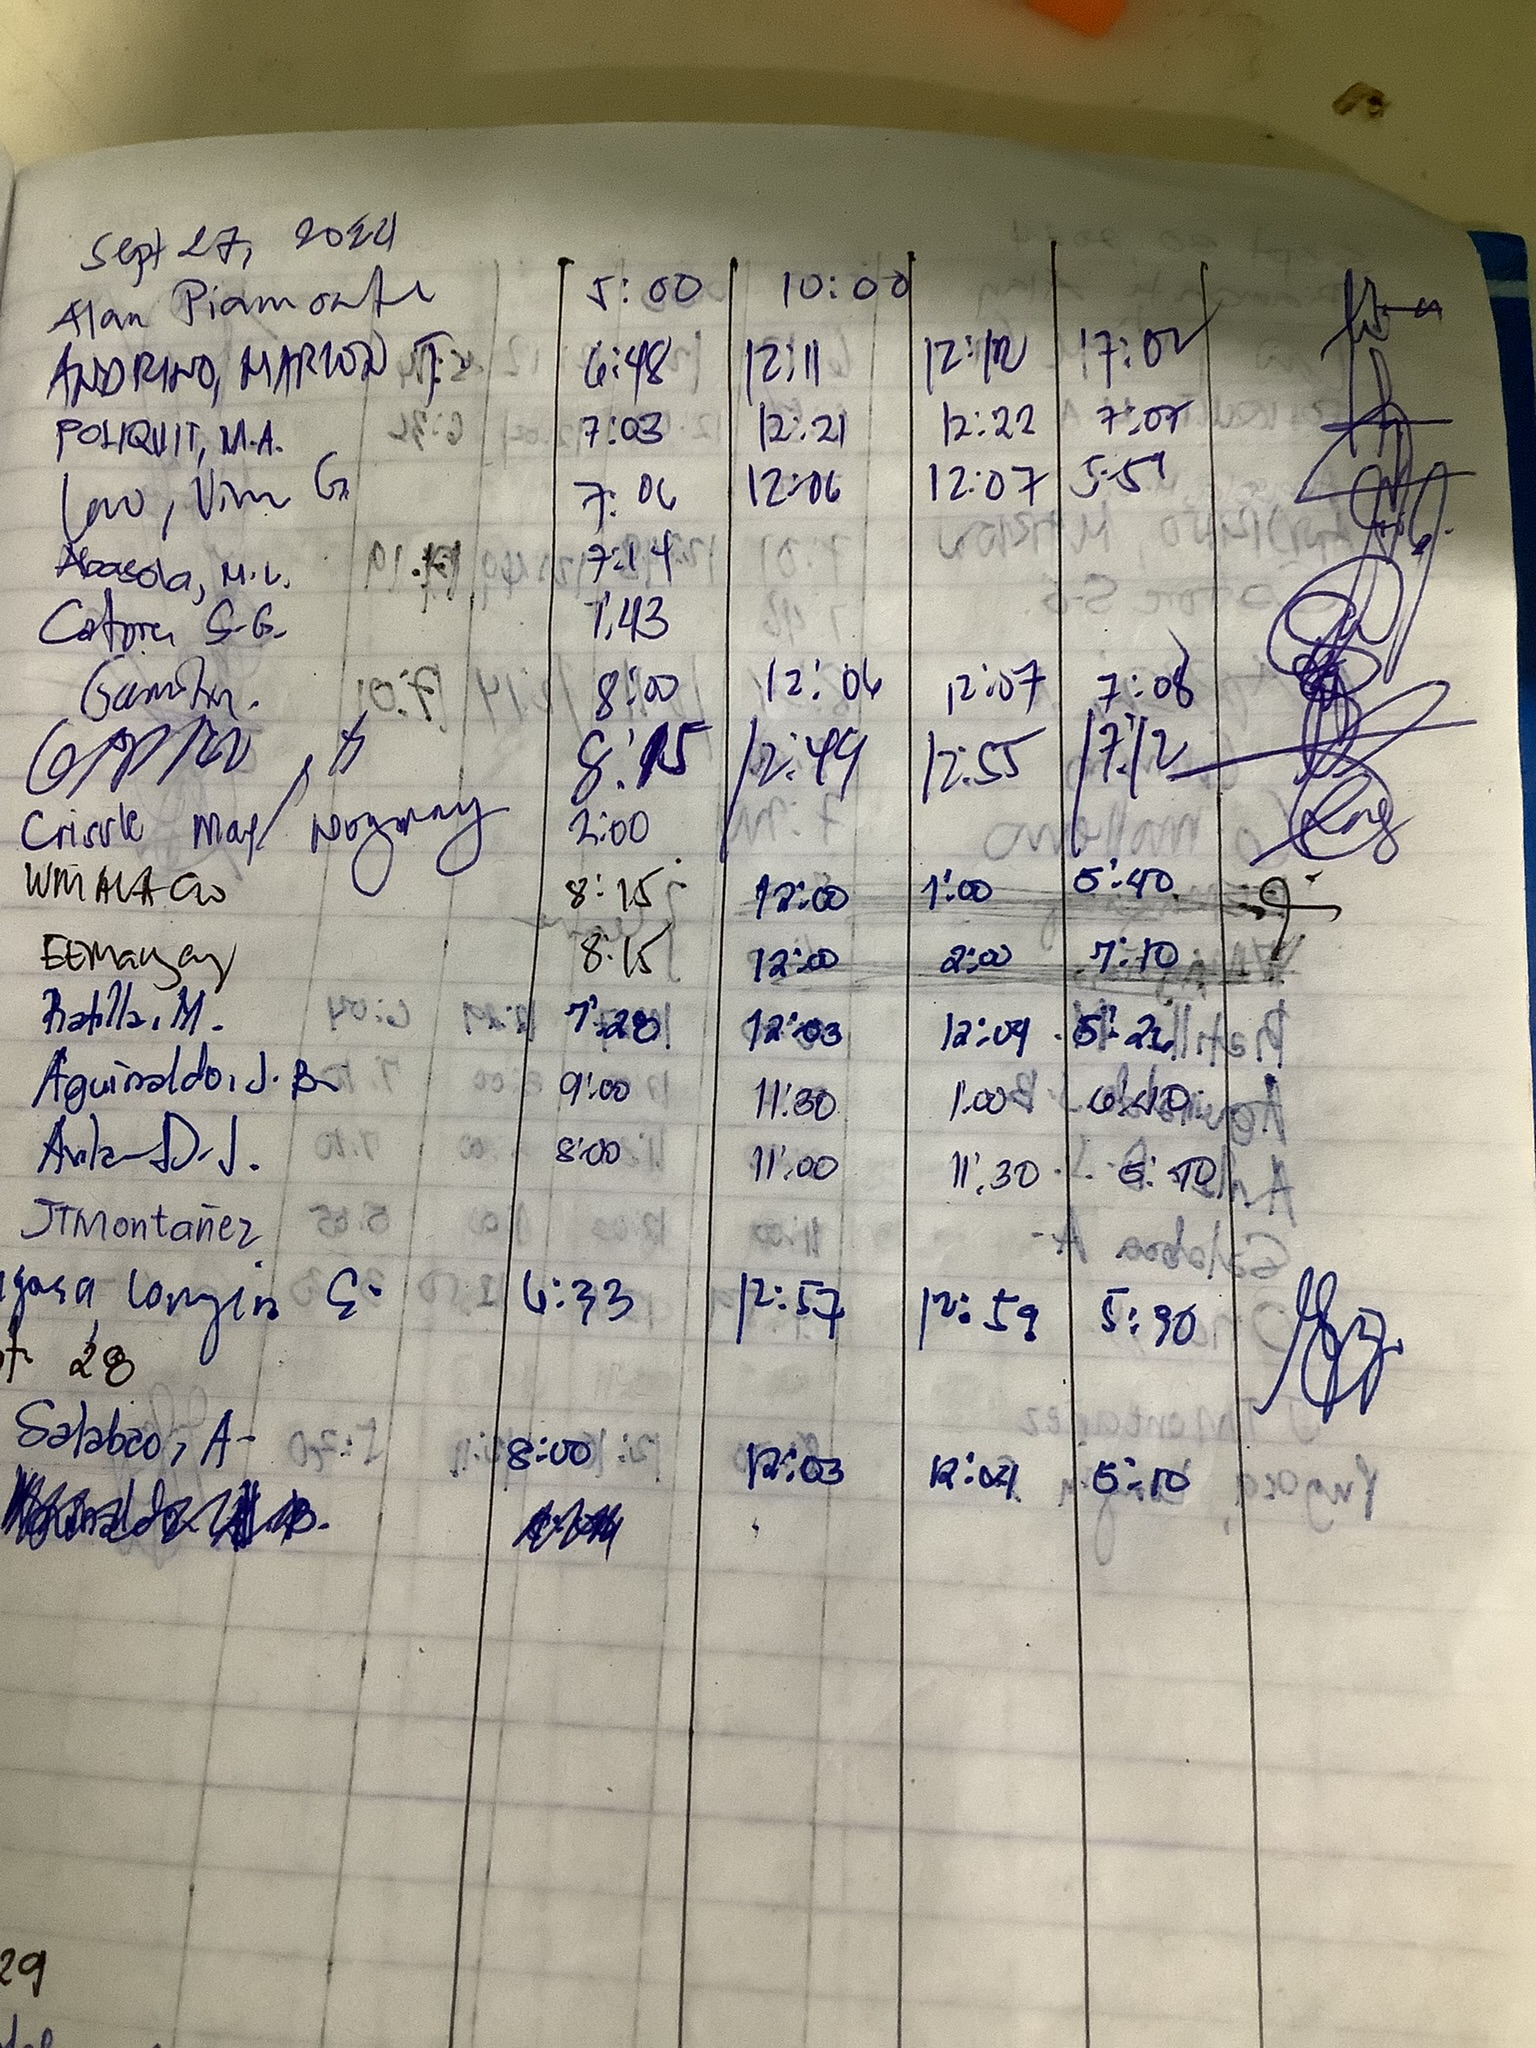 Sept 27, 2024
Alan Piamonte 5:00 10:00
ANDRINO, MARION T. 6:48 12:11 12:12 17:02
POLIQUIT, M.A. 7:03 12:21 12:22 7:07
7:06 12:06 12:07 5:59
Abasola, M.L. 7:14
S.G. 7:43
8:00 12:06 12:07 7:08
8:15 12:49 12:55 17:12
May 2:00
8:15 12:00 1:00 5:40
8:15 12:00 2:00 7:10
Ratilla, M. 7:28 12:03 12:04
Aguinaldo, J.B. 9:00 11:30 1:00 6:40
Avila D.J. 8:00 11:00 11:30
JTMontañez
Longin E. 6:33 12:57 12:59 5:30
28
Salabao, A- 8:00 12:03 12:04 5:10
29